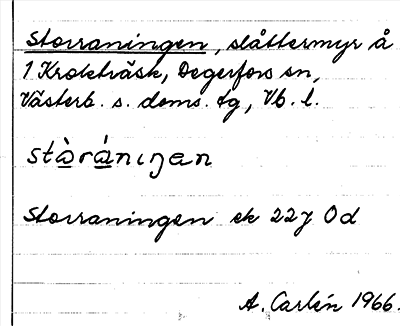 Storraningen, slåttermyr å
1 Kroksträsk, Degerfors sn,
Västerb. s. doms. tg, Vb. l.
stòránıŋen
Storraningen ek 22J 0d
A. Carlén 1966.